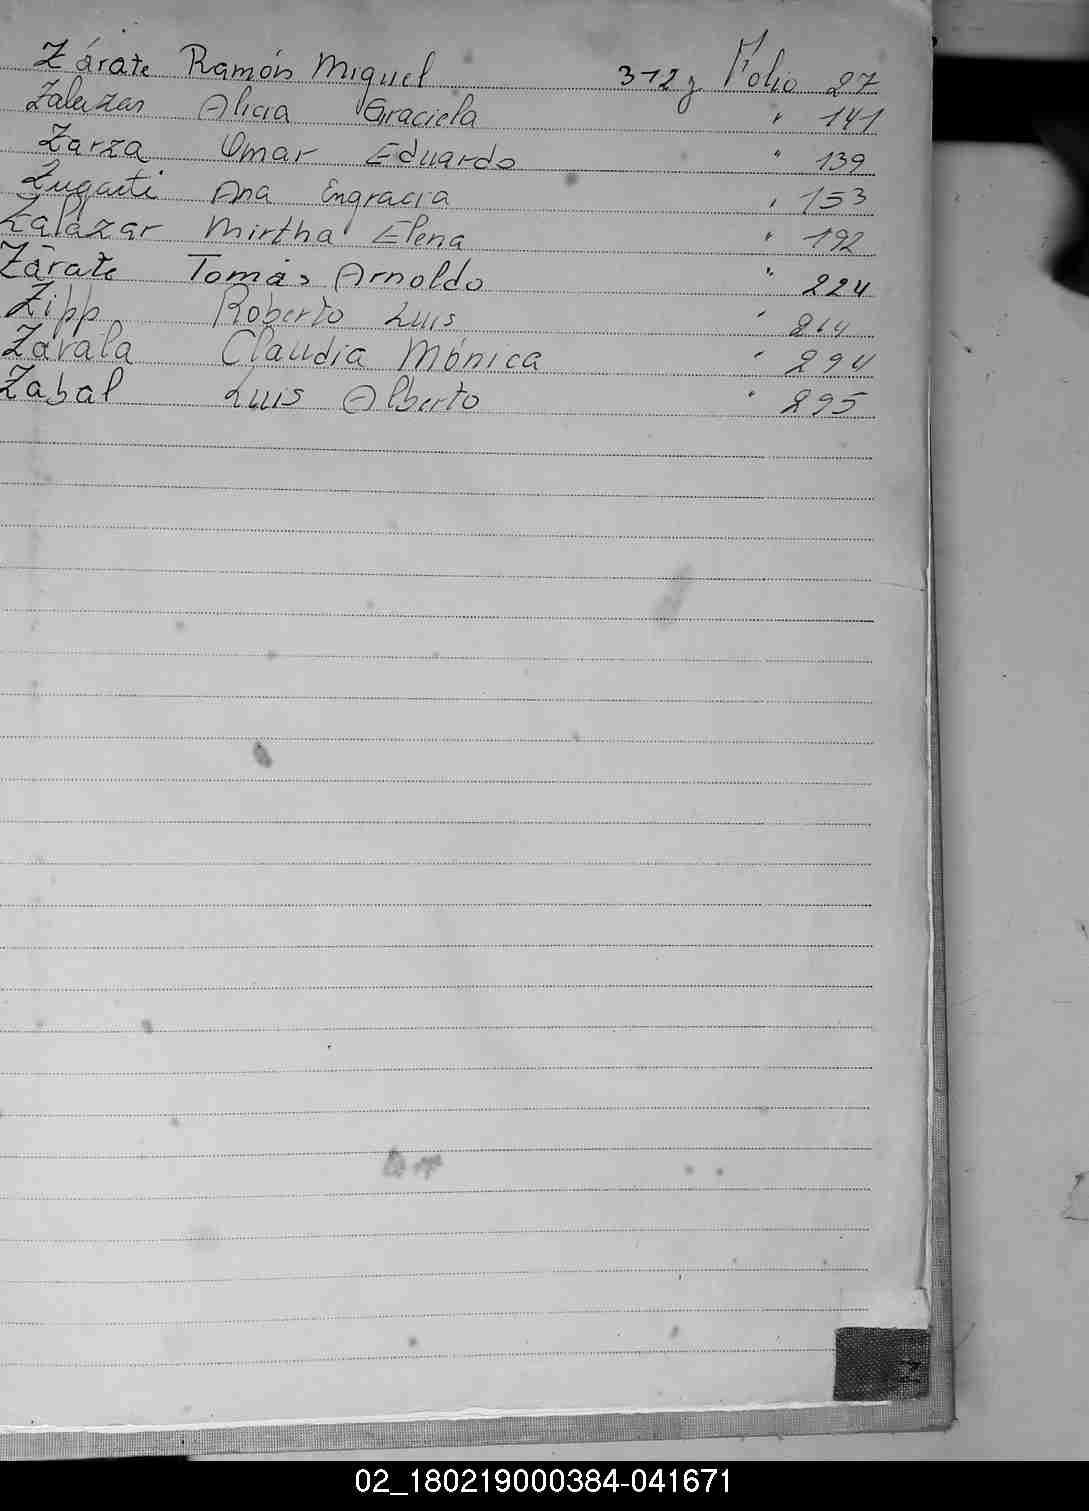 Zárate Ramón Miguel 3-12 y Folio 27
Zalazar Alicia Graciela " 141
Zarza Omar Eduardo " 139
Zugasti Ana Engracia " 153
Zalazar Mirtha Elena " 192
Zárate Tomás Arnoldo " 224
Zipp Roberto Luis "
Zavala Claudia Mónica " 294
Zabal Luis Alberto " 295
Z
02_180219000384-041671